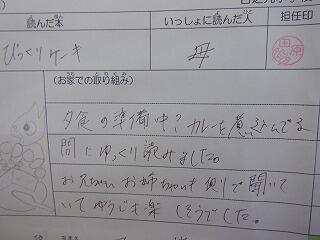 読んだ本 いっしょに読んだ人 担任印
びっくりケーキ 母
(お家での取り組み)
夕食の準備中?カレーを煮込んでる
間にゆっくり読みました。
お兄ちゃん お姉ちゃんも 側で聞いて
いて ゆうじも楽しそうでした。